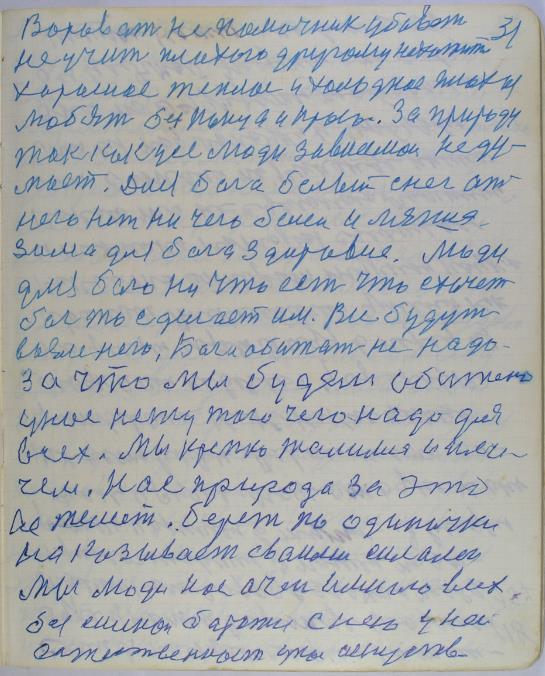 31
Вороват не помочник убават
не учит плахого другому не хотит
хорошое теплое и холодное
любят без конца и проса. За природу
так как усе люди зависемои не ду-
мает. Для бога белый снег от
него нет ни чего белеи и мягчя.
Зима для бога здоровие. Люди
для бога ни что ест что схочет
бог то сделает им. Вси будут
возле него, Бога обижат не надо-
За что мы будем обижено
унас нету того чего надо для
всех. Мы крепко жалилися и
чем. Нас природа за это
не жалеет. берет по одиночки
наказывает сваими силами
Мы люди нас очен много всех.
без силнои бароти с нею у ней
естественност унас искуств-